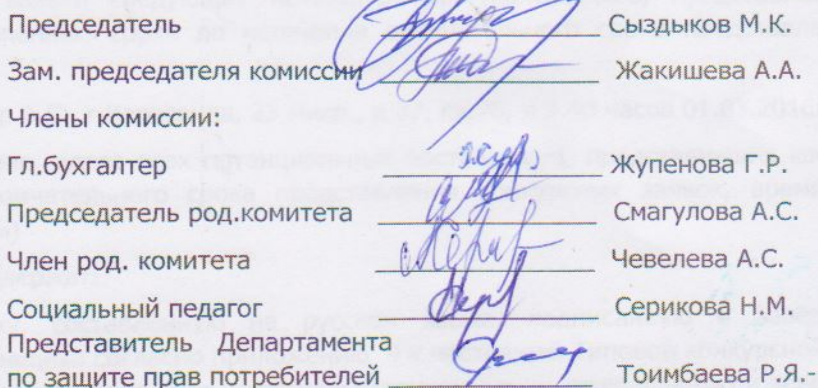 Председатель Сыздыков М.К.
Зам. председателя комиссии Жакишева А.А.
Члены комиссии:
Гл.бухгалтер Жупенова Г.Р.
Председатель род.комитета Смагулова А.С.
Член род. комитета Чевелева А.С.
Социальный педагог Серикова Н.М.
Представитель Департамента
по защите прав потребителей Тоимбаева Р.Я.-